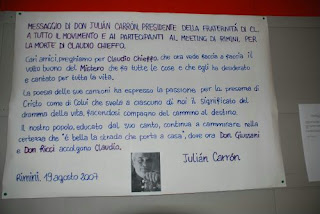 MESSAGGIO DI DON JULIÁN CARRÓN, PRESIDENTE DELLA FRATERNITÀ DI CL,
A TUTTO IL MOVIMENTO E AI PARTECIPANTI AL MEETING DI RIMINI, PER
LA MORTE DI CLAUDIO CHIEFFO.
Cari amici, preghiamo per Claudio Chieffo, che ora vede faccia a faccia il
volto buono del Mistero che fa tutte le cose e che egli ha desiderato
e cantato per tutta la vita.
La poesia delle sue canzoni ha espresso la passione per la presenza di
Cristo come di Colui che svela a ciascuno di noi il significato del
dramma della vita, facendosi compagno del cammino al destino.
Il nostro popolo, educato dal suo canto, continua a camminare nella
certezza che "è bella la strada che porta a casa", dove ora Don Giussani
e Don Ricci accolgono Claudio.
Julián Carrón
Rimini, 19 agosto 2007